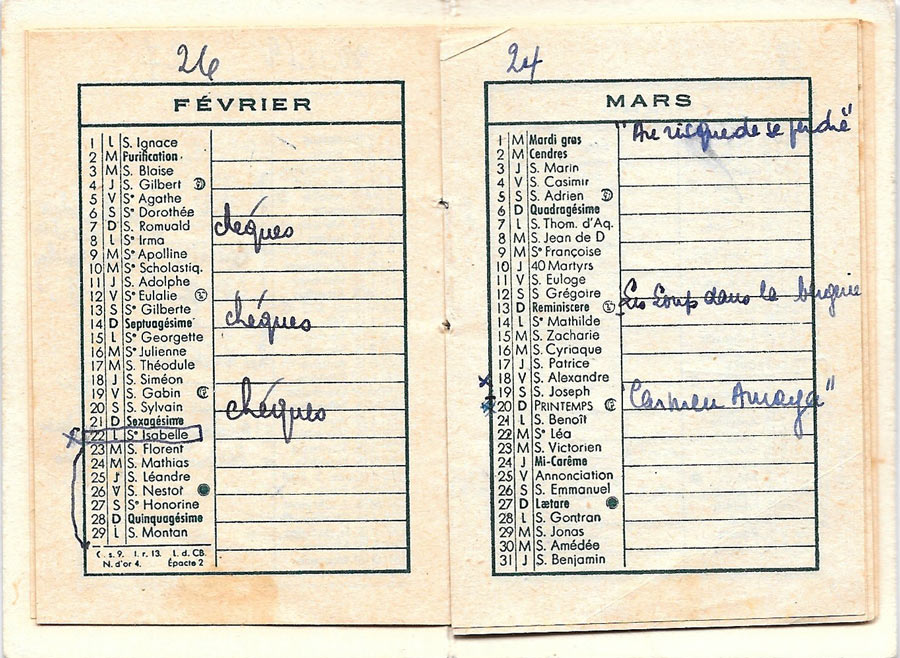 26
FÉVRIER
1 L S. Ignace
2 M Purification.
3 M S. Blaise
4 J S. Gilbert
5 V Se Agathe
6 S Se Dorothée
7 D S. Romuald chéques
8 L Se Irma
9 M Se Apolline
10 M Se Scholastiq.
11 J S. Adolphe
12 V Se Eulalie
13 S Se Gilberte
14 D Septuagésime chéques
15 L Se Georgette
16 M Se Julienne
17 M S. Théodule
18 J S. Siméon
19 V S. Gabin
20 S S. Sylvain chéques
21 D Sexagésime
x 22 L Se Isabelle
23 M S. Florent
24 M S. Mathias
25 J S. Léandre
26 V S. Nestor
27 S Se Honorine
28 D Quinquagésime
29 L S. Montan
C. s. 9. l. r. 13. L. d. CB.
N. d'or 4. Épacte 2
24
MARS
"Au risque de se perdre"
1 M Mardi gras
2 M Cendres
3 J S. Marin
4 V S. Casimir
5 S S. Adrien
6 D Quadragésime
7 L S. Thom. d'Aq.
8 M S. Jean de D
9 M Se Françoise
10 J 40 Martyrs
11 V S. Euloge
12 S S. Grégoire Les Loup dans la bergerie
13 D Reminiscere
14 L Se Mathilde
15 M S. Zacharie
16 M S. Cyriaque
17 J S. Patrice
x 18 V S. Alexandre
19 S S. Joseph
x 20 D PRINTEMPS "Carmen Amaya"
21 L S. Benoît
22 M Se Léa
23 M S. Victorien
24 J Mi-Carême
25 V Annonciation
26 S S. Emmanuel
27 D Lætare
28 L S. Gontran
29 M S. Jonas
30 M S. Amédée
31 J S. Benjamin